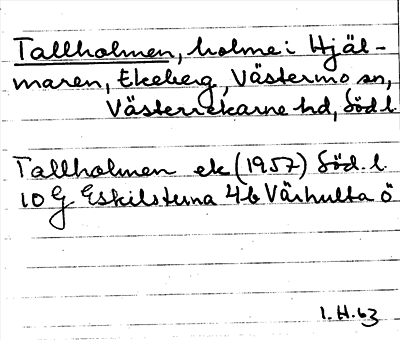 Tallholmen, holme i Hjäl-
maren, Ekeberg, Västermo sn,
Västerrekarne hd, Söd. l.
Tallholmen ek (1957) Söd. l.
10 G Eskilstuna 4b Värhulta ö
1.H.63